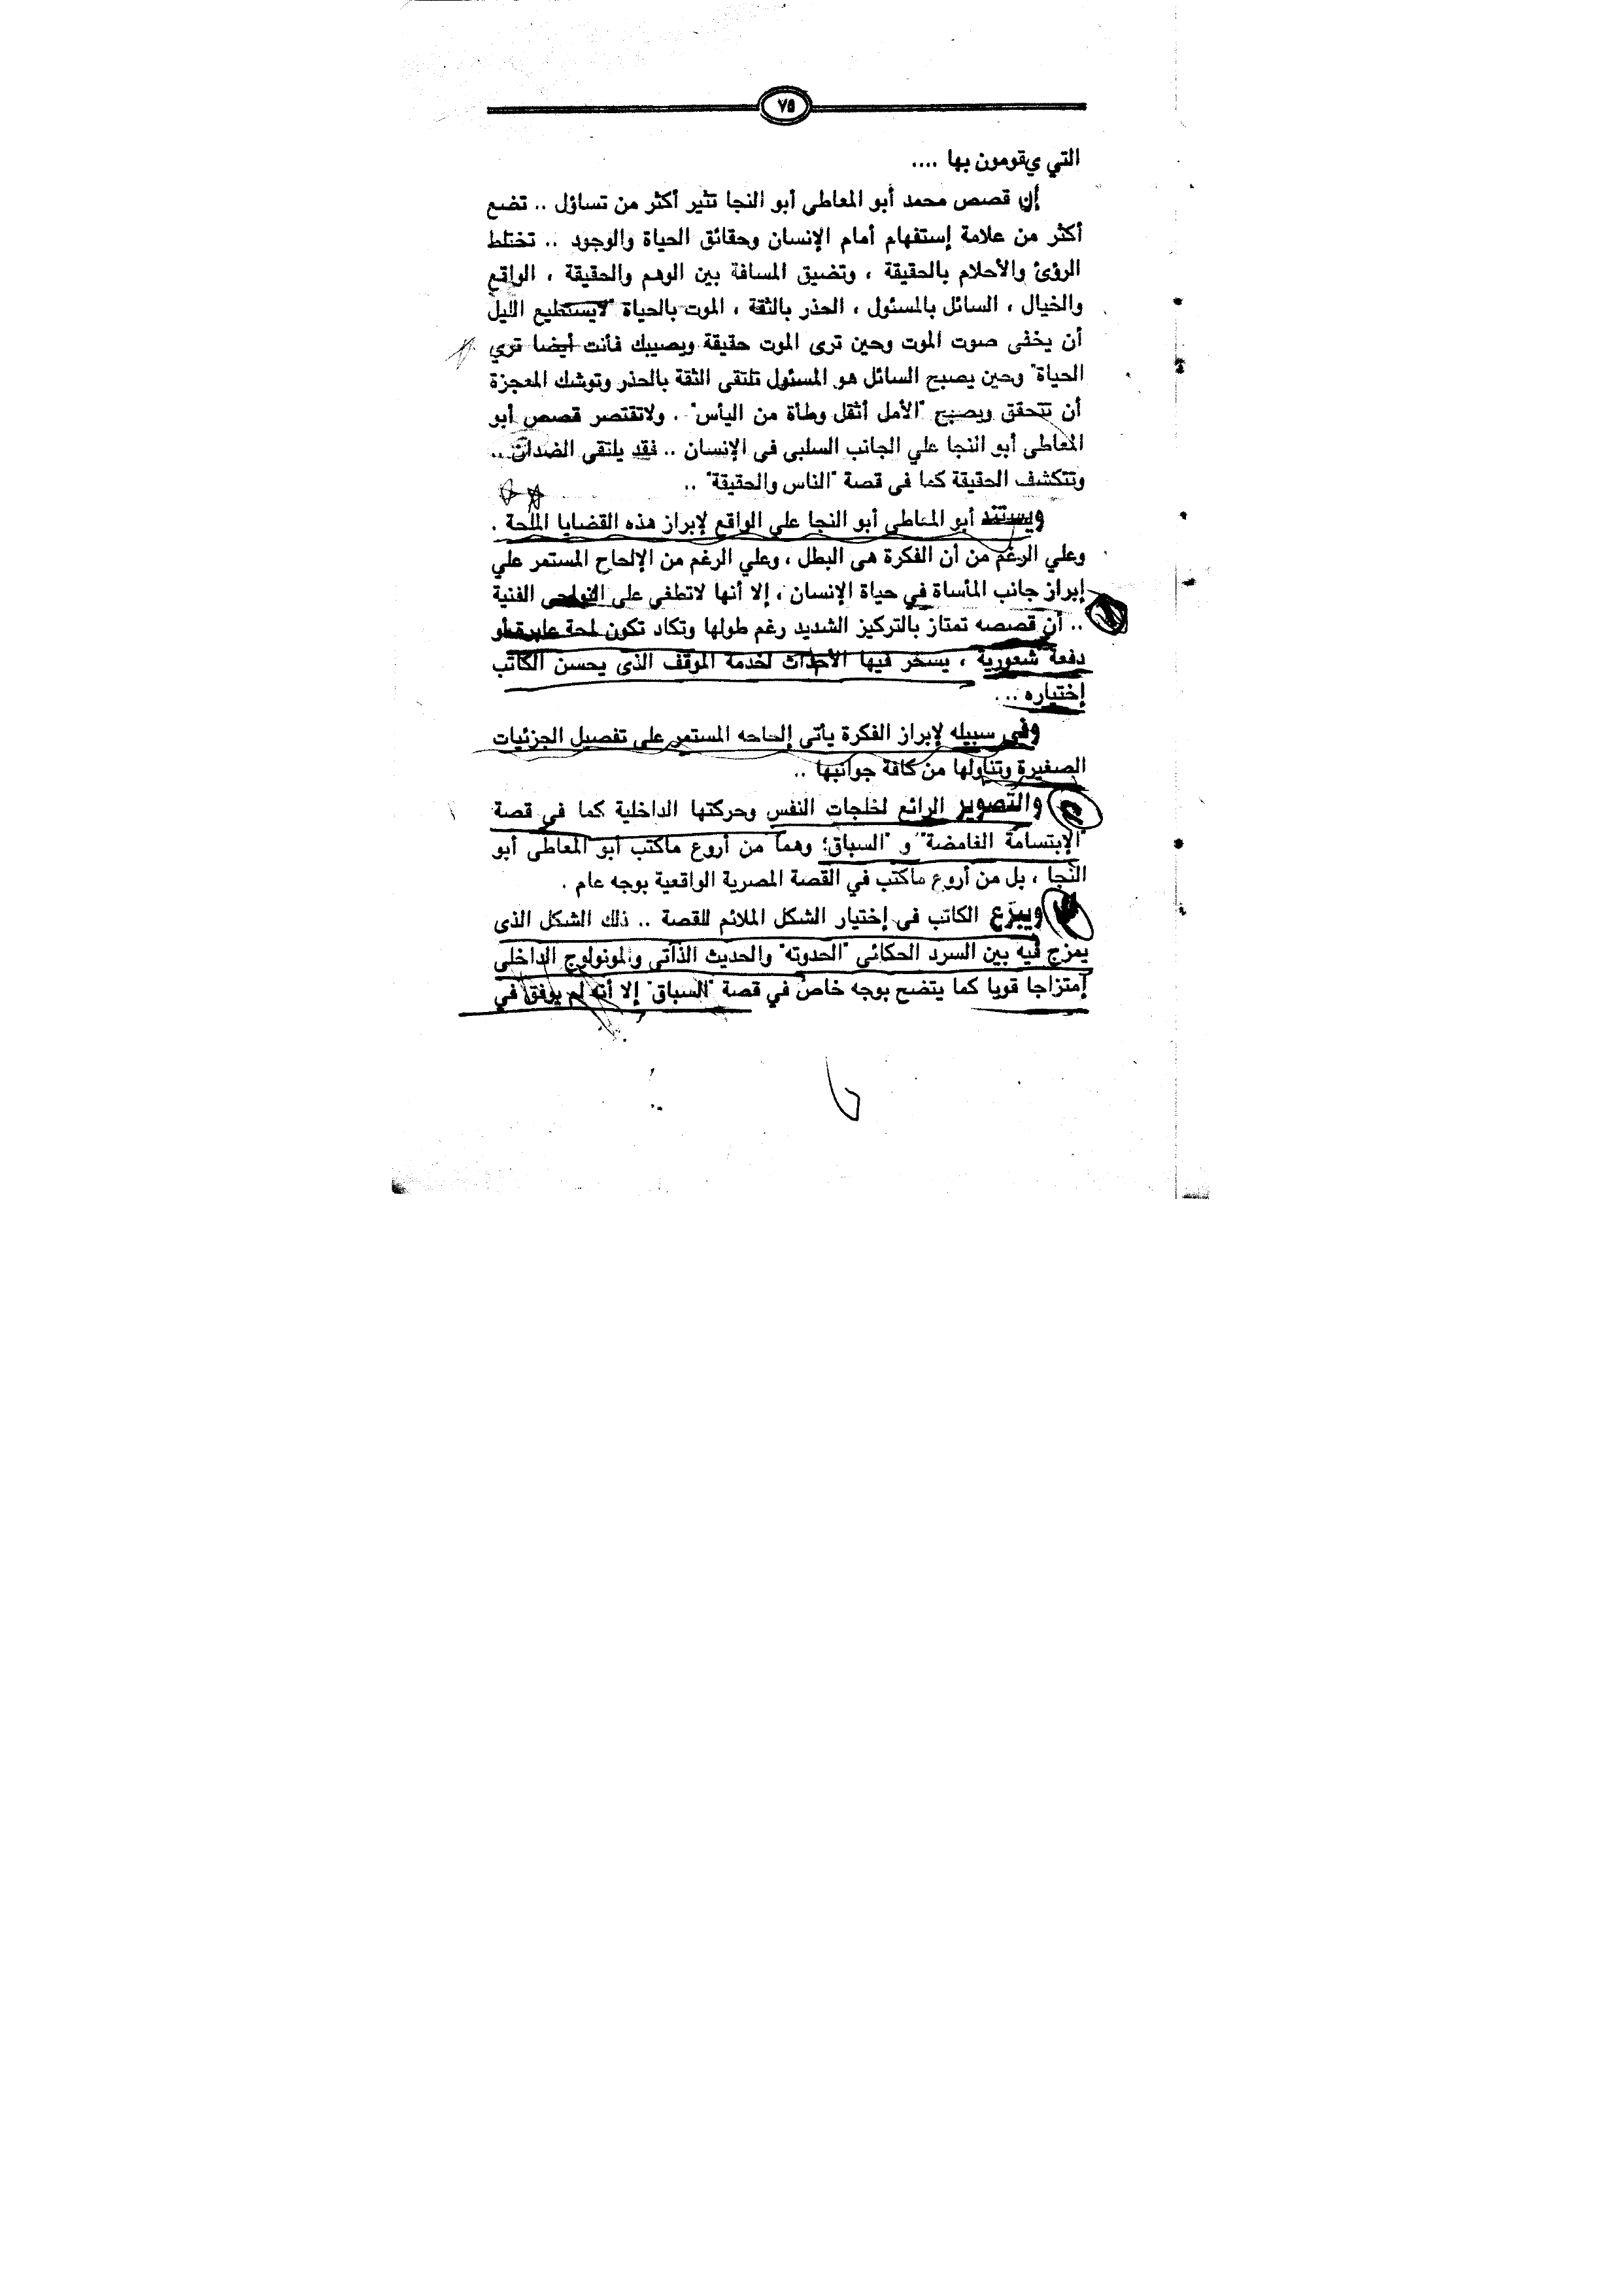 ٧٥
التي يقومون بها ....
إن قصص محمد أبو المعاطى أبو النجا تثير أكثر من تساؤل .. تضع
أكثر من علامة إستفهام أمام الإنسان وحقائق الحياة والوجود .. تختلط
الرؤئ والأحلام بالحقيقة ، وتضيق المسافة بين الوهم والحقيقة ، الواقع
والخيال ، السائل بالمسئول ، الحذر بالثقة ، الموت بالحياة "لايستطيع الليل
أن يخفى صوت الموت وحين ترى الموت حقيقة ويصيبك فأنت أيضا تري
الحياة" وحين يصبح السائل هو المسئول تلتقى الثقة بالحذر وتوشك المعجزة
أن تتحقق ويصبح "الأمل أثقل وطأة من اليأس" . ولاتقتصر قصص أبو
المعاطى أبو النجا علي الجانب السلبى فى الإنسان .. فقد يلتقى الضدان ..
وتتكشف الحقيقة كما فى قصة "الناس والحقيقة" ..
ويستند أبو المعاطى أبو النجا علي الواقع لإبراز هذه القضايا الملحة .
وعلي الرغم من أن الفكرة هى البطل ، وعلي الرغم من الإلحاح المستمر علي
إبراز جانب المأساة في حياة الإنسان ، إلا أنها لاتطفى على النواحى الفنية
.. أن قصصه تمتاز بالتركيز الشديد رغم طولها وتكاد تكون لمحة عابرة أو
دفعة شعورية ، يسخر فيها الأحداث لخدمة الموقف الذى يحسن الكاتب
إختياره ...
وفى سبيله لإبراز الفكرة يأتى إلحاحه المستمر على تفصيل الجزئيات
الصغيرة وتناولها من كافة جوانبها ..
والتصوير الرائع لخلجات النفس وحركتها الداخلية كما فى قصة
"الإبتسامة الغامضة" و "السباق؛ وهما من أروع ماكتب أبو المعاطى أبو
النجا ، بل من أروع ماكتب في القصة المصرية الواقعية بوجه عام .
ويبزع الكاتب فى إختيار الشكل الملائم للقصة .. ذلك الشكل الذى
يمزج فيه بين السرد الحكائى "الحدوته" والحديث الذأتى والمونولوج الداخلى
إمتزاجا قويا كما يتضح بوجه خاص في قصة "السباق" إلا أنه لم يوفق في